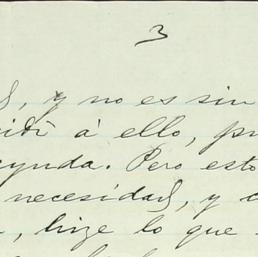 3
y no es sin
á ello,
Pero esto
necesidad, y
hize lo que